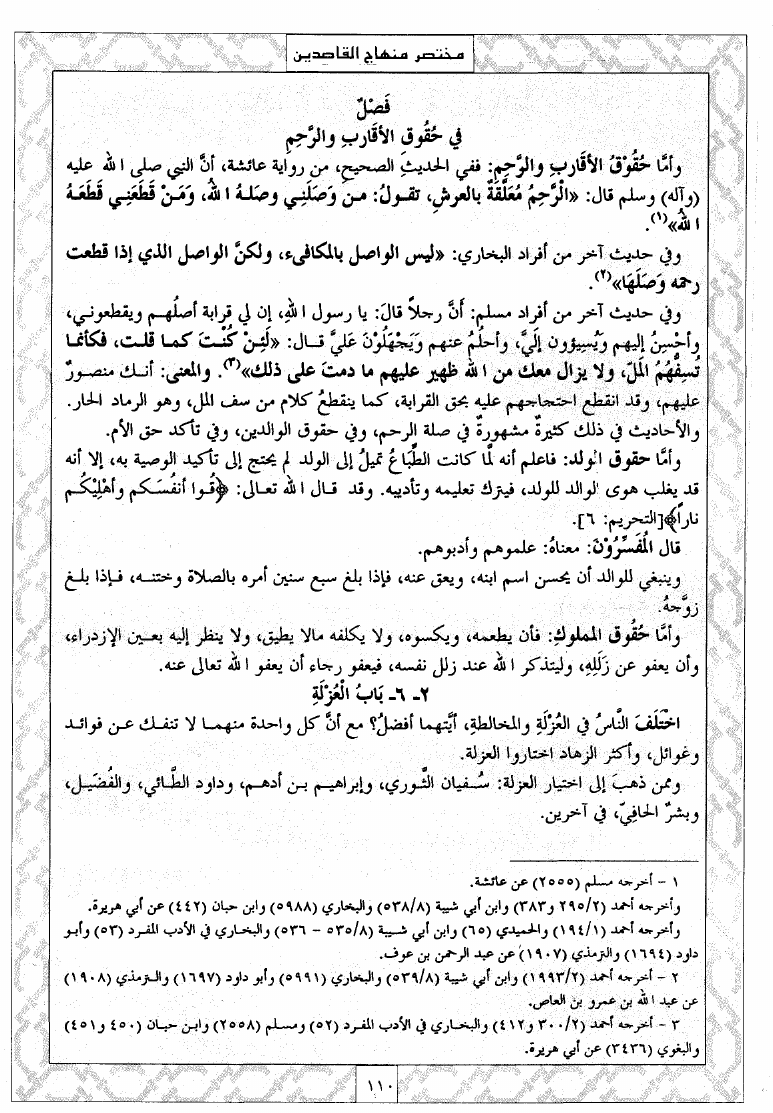 مختصر منهاج القاصدين
فَصْلٌ
في حُقُوق الأقَاربِ والرَّحِمِ
وأمَّا حُقُوْقُ الأقَاربِ والرَّحِمِ: ففي الحديثِ الصحيحِ، من رواية عائشة، أنَّ النبي صلى الله عليه
(وآله) وسلم قال: «الْرَّحِمُ مُعَلَّقَةٌ بالعرشِ، تقولُ: من وَصَلَنِي وصلهُ اللهُ، وَمَنْ قَطَعَنِي قَطَعَهُ
اللهُ»(١).
وفي حديث آخر من أفراد البخاري: «ليس الواصل بالمكافىء، ولكنَّ الواصل الذي إذا قطعت
رحمه وَصَلَهَا»(٢).
وفي حديث آخر من أفراد مسلم: أَنَّ رجلاً قالَ: يا رسول اللهِ، إن لي قرابة أصلُهم ويقطعوني،
وأحْسِنُ إليهم وَيُسِيؤون إليَّ، وأحلُم عنهم وَيَجْهَلُوْنَ عَليَّ قال: «لَئِنْ كُنْتَ كما قلت، فكأنما
تُسِفُّهُمُ المَلّ، ولا يزال معك من الله ظهير عليهم ما دمتَ على ذلك»(٣). والمعنى: أنك منصورٌ
عليهم، وقد انقطع احتجاجهم عليه بحق القرابة، كما ينقطعُ كلام من سف المل، وهو الرماد الحار.
والأحاديث في ذلك كثيرةٌ مشهورةٌ في صلة الرحم، وفي حقوق الوالدين، وفي تأكد حق الأم.
وأمَّا حقوق الولد: فاعلم أنه لمَّا كانت الطِّبَاعُ تميلُ إلى الولد لم يحتج إلى تأكيد الوصية به، إلا أنه
قد يغلب هوى الوالد للولد، فيترك تعليمه وتأديبه. وقد قال الله تعالى: ﴿قُوا أنفُسَكم وأهْلِيْكُم
ناراً﴾[التحريم: ٦].
قال المُفَسِّرُوْنَ: معناهُ: علموهم وأدبوهم.
وينبغي للوالد أن يحسن اسم ابنه، ويعق عنه، فإذا بلغ سبع سنين أمره بالصلاة وختنه، فإذا بلغ
زوَّجهُ.
وأمَّا حُقُوق المملوكِ: فأن يطعمه، ويكسوه، ولا يكلفه مالا يطيق، ولا ينظر إليه بعين الإزدراء،
وأن يعفو عن زَلَلِهِ، وليتذكر الله عند زلل نفسه، فيعفو رجاء أن يعفو الله تعالى عنه.
٢- ٦- بَابُ الْعُزْلَةِ
اخْتَلَفَ النَّاسُ في العُزْلَةِ والمخالطةِ، أيَّتهما أفضلُ؟ مع أنَّ كل واحدة منهما لا تنفك عن فوائد
وغوائل، وأكثر الزهاد اختاروا العزلة.
وممن ذهبَ إلى اختيار العزلة: سُفيان الثَّوري، وإبراهيم بن أدهم، وداود الطَّائي، والفُضَيل،
وبشرٌ الحافِيّ، في آخرين.
١ - أخرجه مسلم (٢٥٥٥) عن عائشة.
وأخرجه أحمد (٢٩٥/٢ و٣٨٣) وابن أبي شيبة (٥٣٨/٨) والبخاري (٥٩٨٨) وابن حبان (٤٤٢) عن أبي هريرة.
وأخرجه أحمد (١٩٤/١) والحميدي (٦٥) وابن أبي شيبة (٥٣٥/٨ - ٥٣٦) والبخاري في الأدب المفرد (٥٣) وأبو
داود (١٦٩٤) والترمذي (١٩٠٧) عن عبد الرحمن بن عوف.
٢ - أخرجه أحمد (١٩٩٣/٢) وابن أبي شيبة (٥٣٩/٨) والبخاري (٥٩٩١) وأبو داود (١٦٩٧) والترمذي (١٩٠٨)
عن عبد الله بن عمرو بن العاص.
٣ - أخرجه أحمد (٣٠٠/٢ و٤١٢) والبخاري في الأدب المفرد (٥٢) ومسلم (٢٥٥٨) وابن حبان (٤٥٠ و٤٥١)
والبغوي (٣٤٣٦) عن أبي هريرة.
١١٠